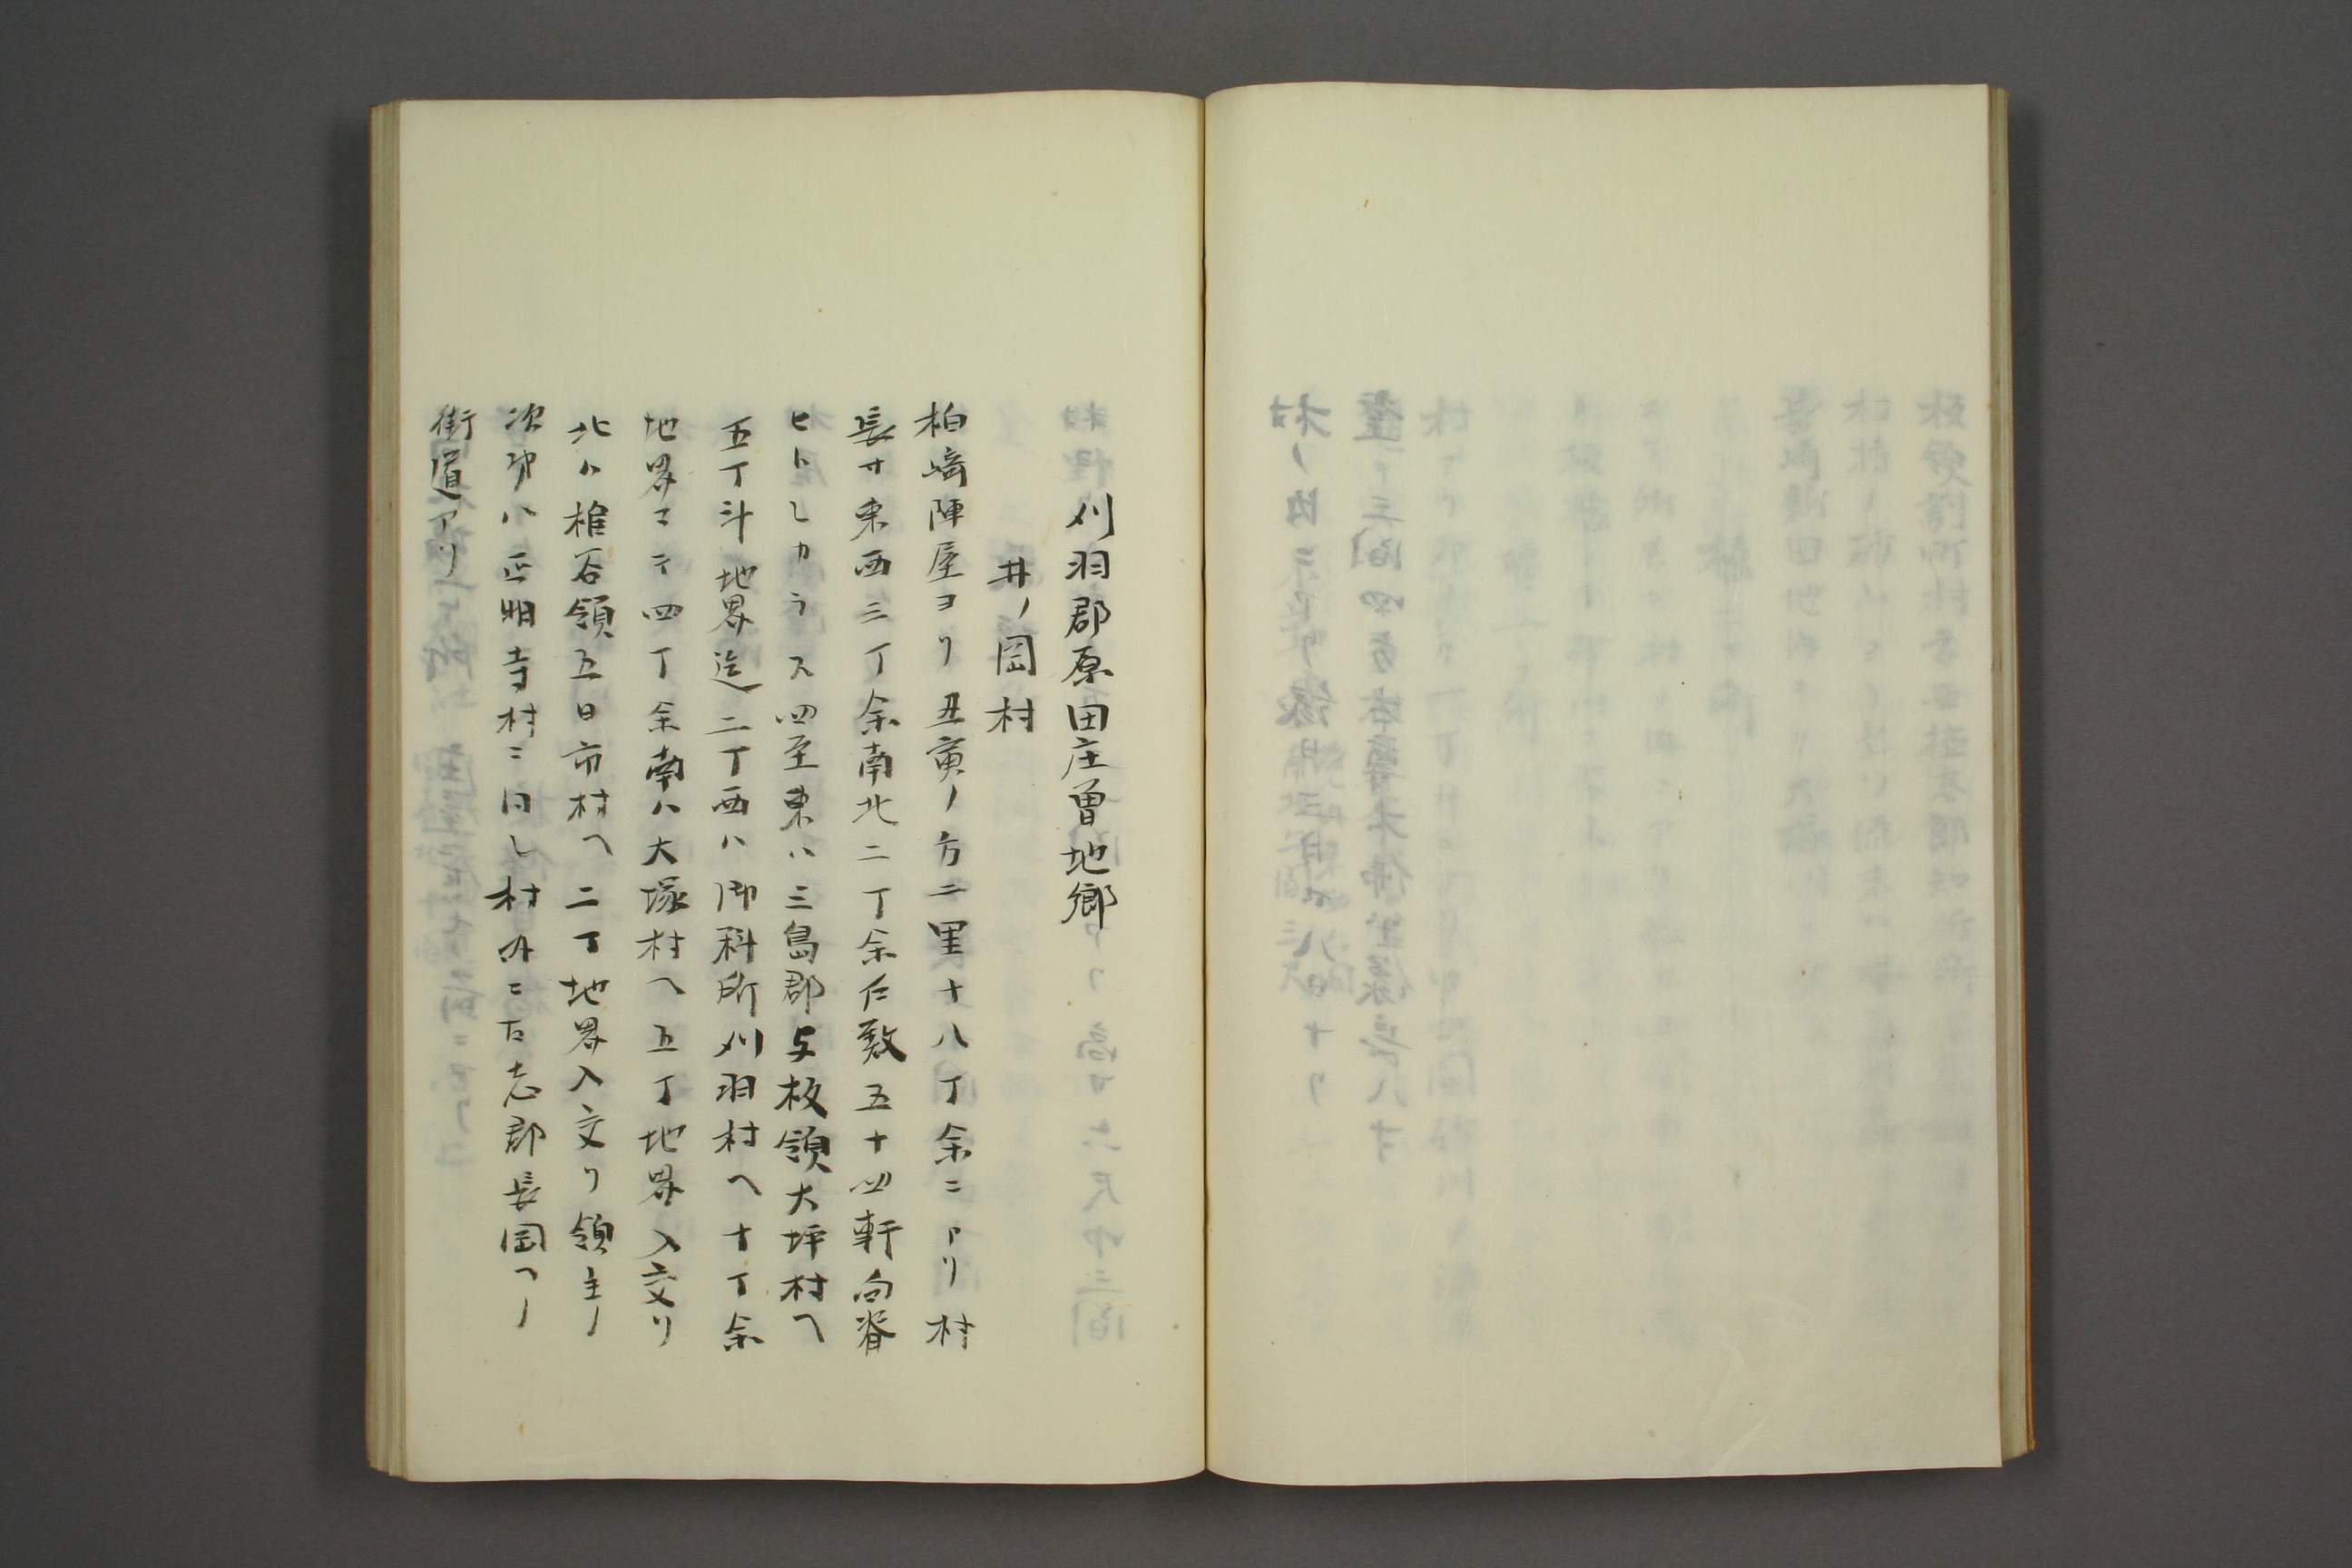 刈羽郡原田庄曽地郷
井ノ岡村
柏崎陣屋ヨリ丑寅ノ方二里十八丁余ニアリ村
長サ東西三丁余南北二丁余戸数五十四軒向脊
ヒトシカラス四至東ハ三島郡与板領大坪村ヘ
五丁斗地界迄二丁西ハ御料所刈羽村ヘ十丁余
地界マテ四丁余南ハ大塚村ヘ五丁地界入交リ
北ハ椎谷領五日市村ヘ二丁地界入交リ領主ノ
次第ハ正明寺村ニ同シ村内ニ古志郡長岡ヘノ
街道アリ